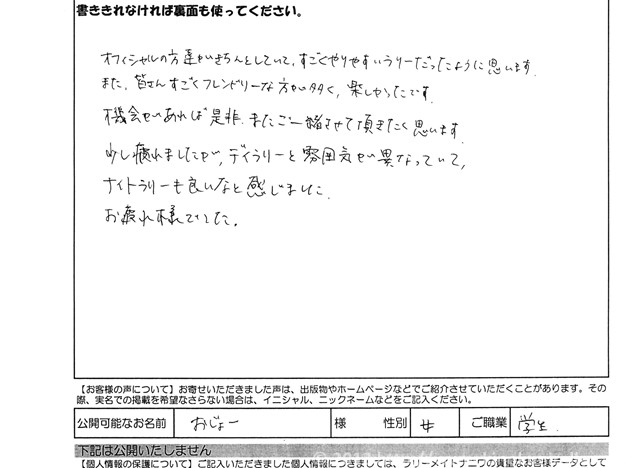 書ききれなければ裏面も使ってください。
オフィシャルの方達がきちんとしていて、すごくやりやすいラリーだったように思います。
また、皆さんすごくフレンドリーな方が多く、楽しかったです。
機会があれば是非、またご一緒させて頂きたく思います。
少し疲れましたが、デイラリーと雰囲気が異なっていて、
ナイトラリーも良いなと感じました。
お疲れ様でした。
【お客様の声について】お寄せいただきました声は、出版物やホームページなどでご紹介させていただくことがあります。その
際、実名での掲載を希望なさらない場合は、イニシャル、ニックネームなどをご記入ください。
公開可能なお名前 おじょー 様 性別 女 ご職業 学生
下記は公開いたしません
【個人情報の保護について】ご記入いただきました個人情報につきましては、ラリーメイトナニワの貴重なお客様データとして